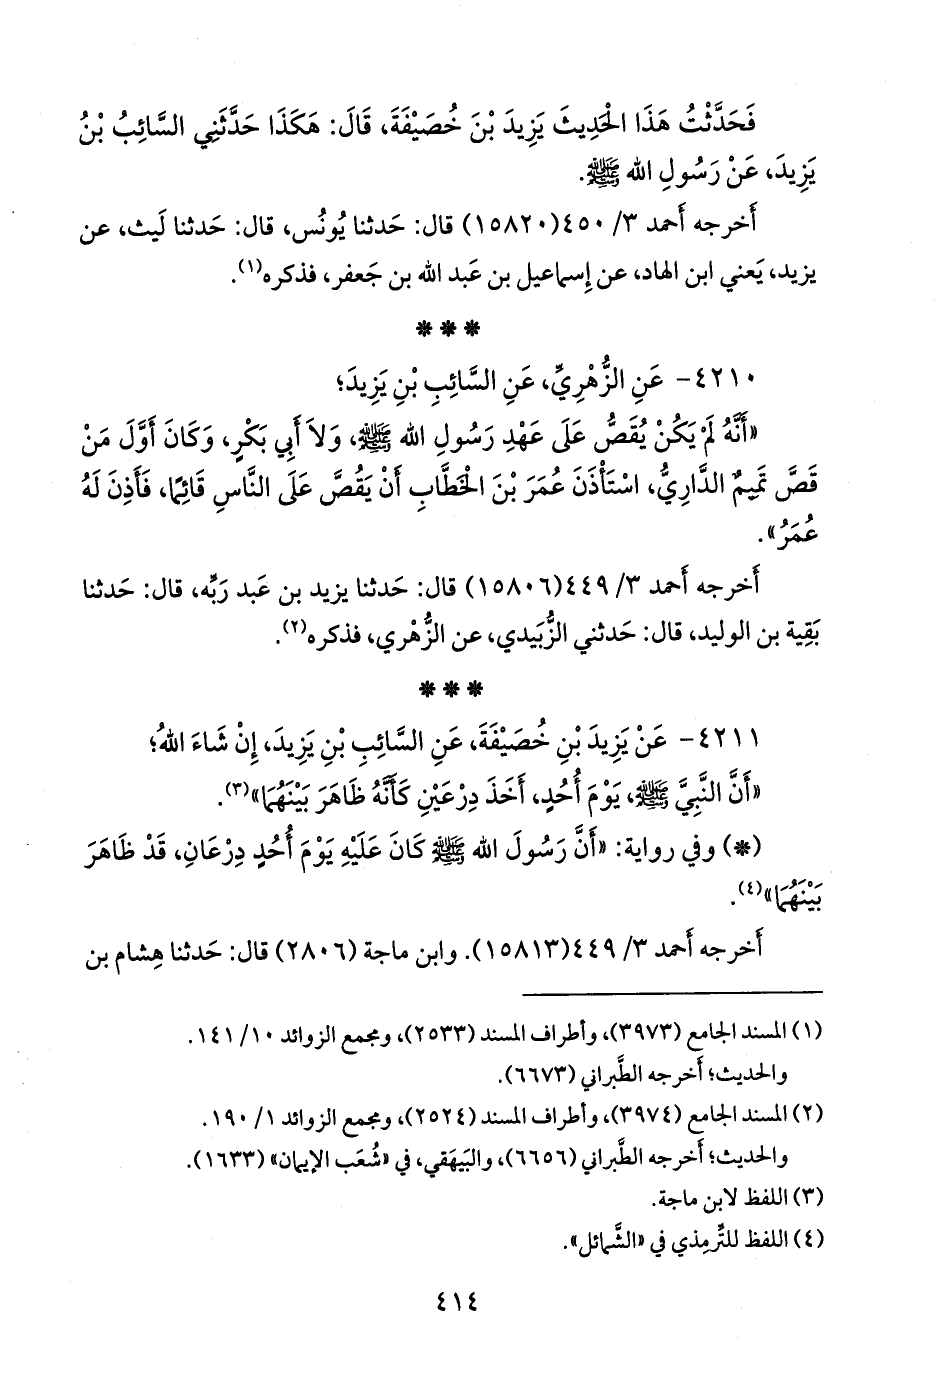 فَحَدَّثْتُ هَذَا الْحَدِيثَ يَزِيدَ بْنَ خُصَيْفَةَ، قَالَ: هَكَذَا حَدَّثَنِي السَّائِبُ بْنُ
يَزِيدَ، عَنْ رَسُولِ الله ﷺ.
أَخرجه أَحمد ٣/ ٤٥٠(١٥٨٢٠) قال: حَدثنا يُونُس، قال: حَدثنا لَيث، عن
يزيد، يَعني ابن الهاد، عن إِسماعيل بن عَبد الله بن جَعفر، فذكره(١).
***
٤٢١٠- عَنِ الزُّهْرِيِّ، عَنِ السَّائِبِ بْنِ يَزِيدَ؛
«أَنَّهُ لَمْ يَكُنْ يُقَصُّ عَلَى عَهْدِ رَسُولِ الله ﷺ، وَلاَ أَبِي بَكْرٍ، وَكَانَ أَوَّلَ مَنْ
قَصَّ تَمِيمٌ الدَّارِيُّ، اسْتَأْذَنَ عُمَرَ بْنَ الْخَطَّابِ أَنْ يَقُصَّ عَلَى النَّاسِ قَائِمًا، فَأَذِنَ لَهُ
عُمَرُ».
أَخرجه أَحمد ٣/ ٤٤٩(١٥٨٠٦) قال: حَدثنا يزيد بن عَبد رَبِّه، قال: حَدثنا
بَقِية بن الوليد، قال: حَدثني الزُّبَيدي، عن الزُّهْري، فذكره(٢).
***
٤٢١١- عَنْ يَزِيدَ بْنِ خُصَيْفَةَ، عَنِ السَّائِبِ بْنِ يَزِيدَ، إِنْ شَاءَ اللهُ؛
«أَنَّ النَّبِيَّ ﷺ، يَوْمَ أُحُدٍ، أَخَذَ دِرْعَيْنِ كَأَنَّهُ ظَاهَرَ بَيْنَهُمَا»(٣).
(*) وفي رواية: «أَنَّ رَسُولَ الله ﷺ كَانَ عَلَيْهِ يَوْمَ أُحُدٍ دِرْعَانِ، قَدْ ظَاهَرَ
بَيْنَهُمَا»(٤).
أَخرجه أَحمد ٣/ ٤٤٩(١٥٨١٣). وابن ماجة (٢٨٠٦) قال: حَدثنا هِشام بن
(١) المسند الجامع (٣٩٧٣)، وأطراف المسند (٢٥٣٣)، ومجمع الزوائد ١٠/ ١٤١.
والحديث؛ أَخرجه الطَّبراني (٦٦٧٣).
(٢) المسند الجامع (٣٩٧٤)، وأطراف المسند (٢٥٢٤)، ومجمع الزوائد ١/ ١٩٠.
والحديث؛ أَخرجه الطَّبراني (٦٦٥٦)، والبَيهَقي، في «شُعَب الإيمان» (١٦٣٣).
(٣) اللفظ لابن ماجة.
(٤) اللفظ للتِّرمِذي في «الشَّمائل».
٤١٤